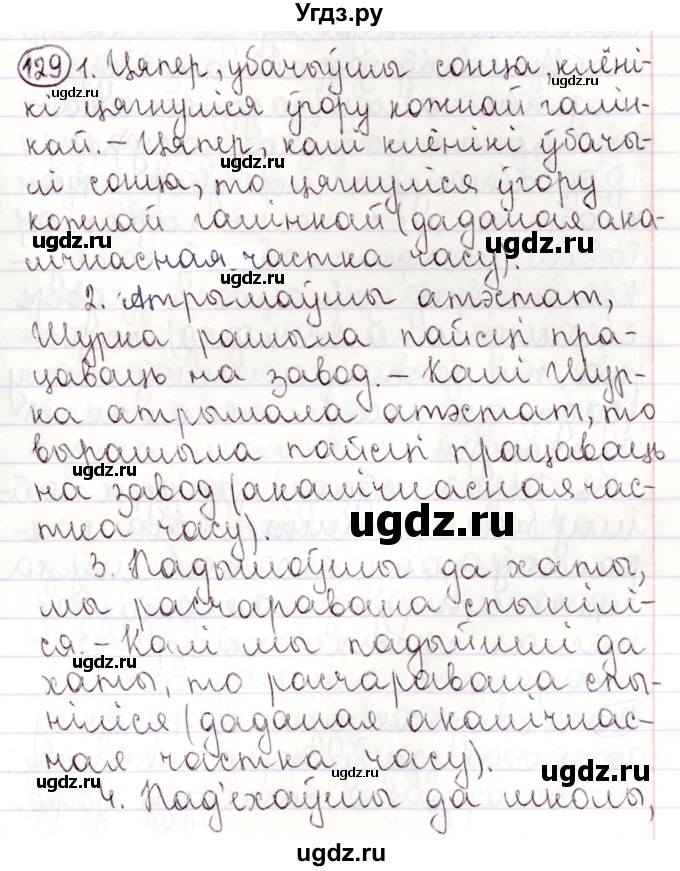 Угдз.ру
129 1. Цяпер, убачыўшы сонца, клёні-
кі цягнуліся ўгору кожнай галін-
кай. – Цяпер, калі клёнікі ўбачы-
лі сонца, то цягнуліся ўгору
кожнай галінкай (даданая ака-
лічнасная частка часу).
2. Атрымаўшы атэстат,
Шурка рашыла пайсці пра-
цаваць на завод. – Калі Шур-
ка атрымала атэстат, то
вырашыла пайсці працаваць
на завод (акалічнасная час-
тка часу).
3. Падышоўшы да хаты,
мы расчаравана спынілі-
ся. – Калі мы падыйшлі да
хаты, то расчаравана спы-
ніліся (даданая акалічнас-
ная частка часу).
4. Пад'ехаўшы да школы,
ugdz.ru
ugdz.ru
ugdz.ru
ugdz.ru
ugdz.ru
ugdz.ru
ugdz.ru
ugdz.ru
ugdz.ru
ugdz.ru
ugdz.ru
ugdz.ru
ugdz.ru
ugdz.ru